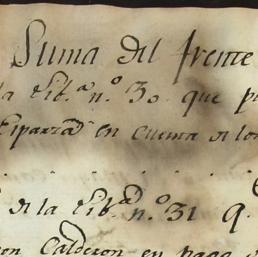 Suma del frente
la Lib.ª n.º 30 que p
Esparza en cuenta de los
de la Lib.ª n.º 31 q
Calderon en pago